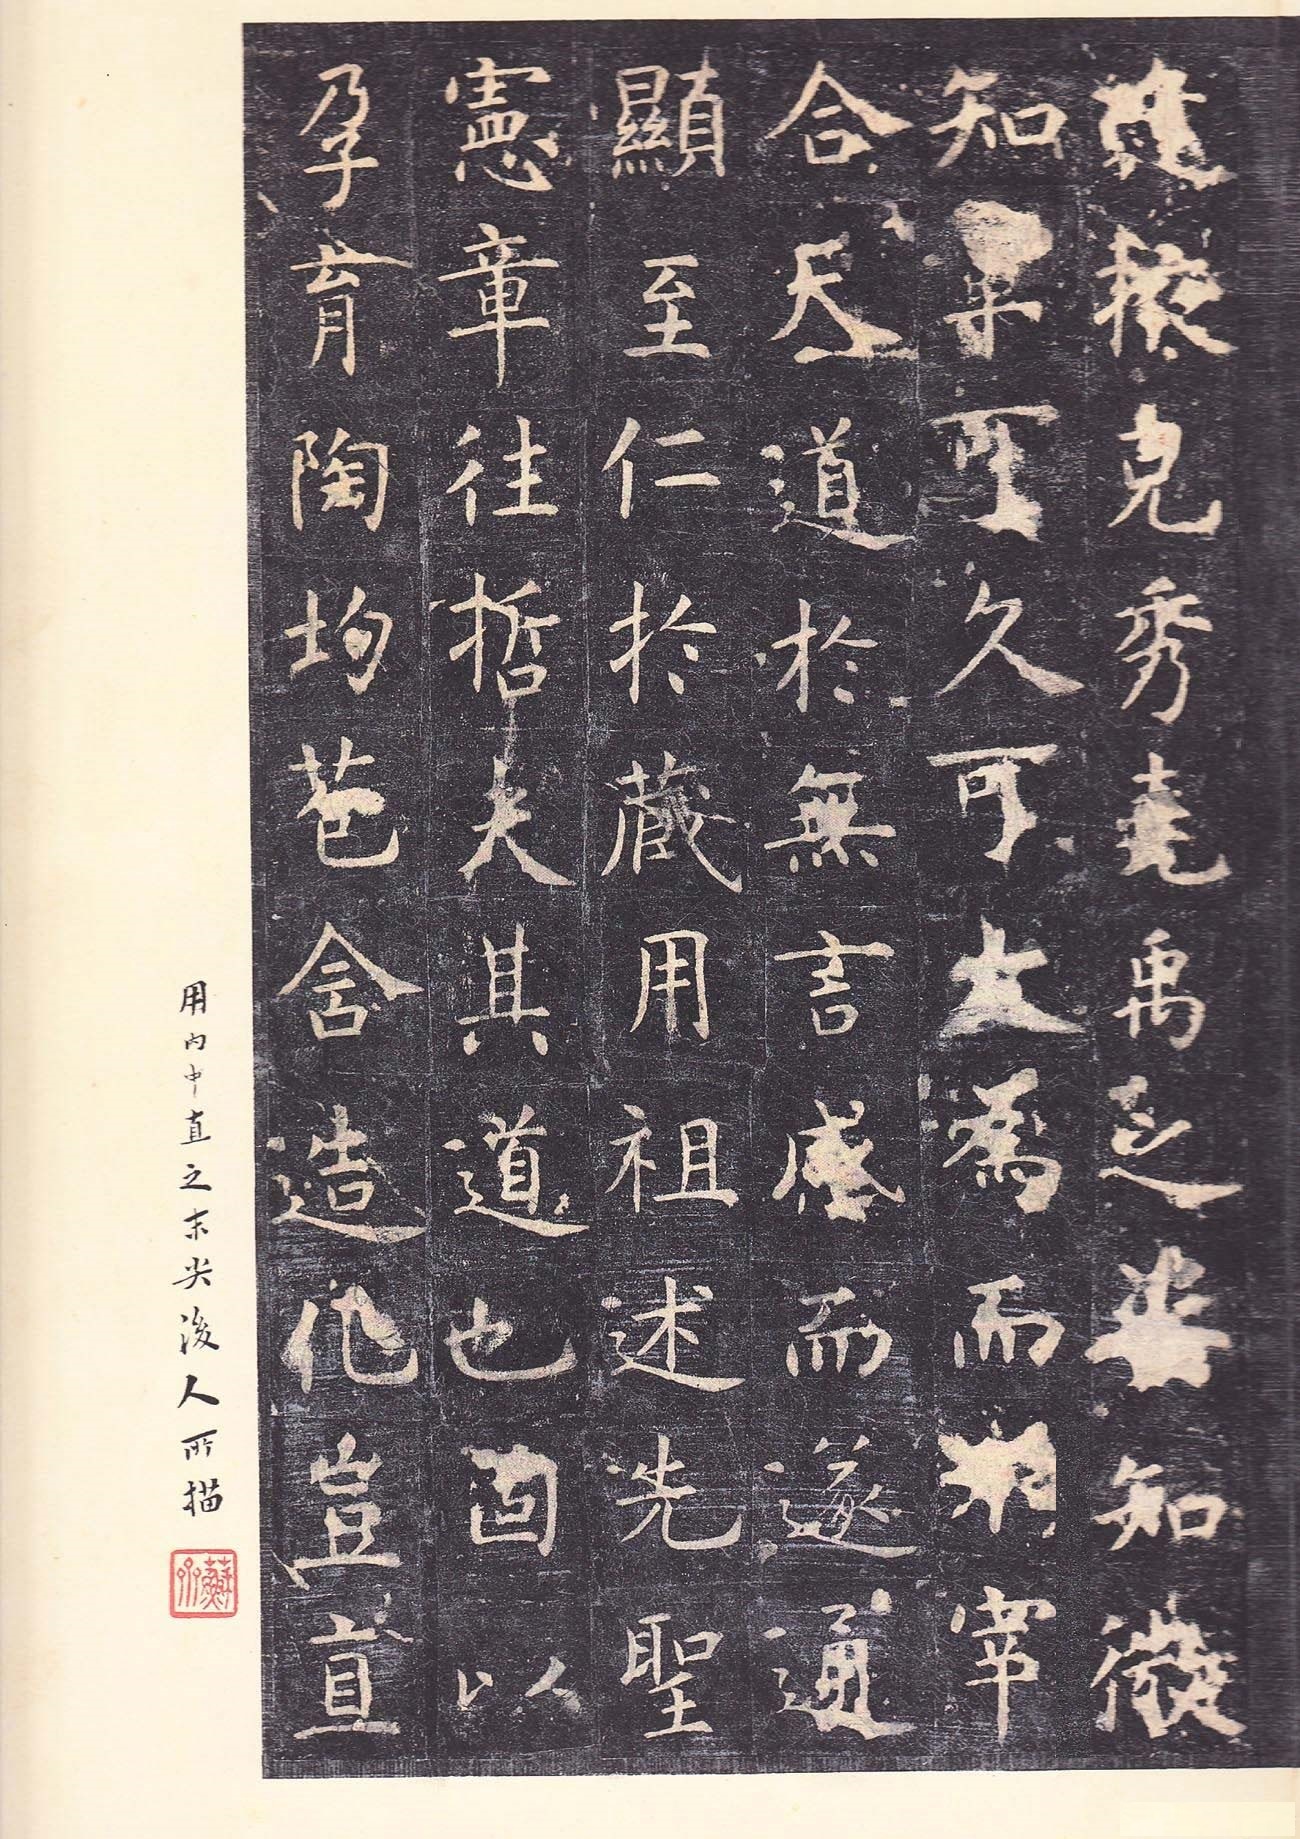 掖克秀堯禹之姿知微
知章可久可大為而不宰
合天道於無言感而遂通
顯至仁於藏用祖述先聖
憲章往哲夫其道也固以
孕育陶均苞含造化豈直
用內中直之末尖後人所描